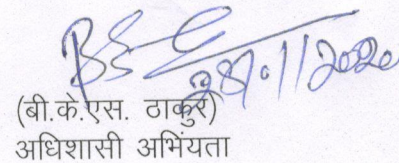 28/01/2020
(बी.के.एस. ठाकुर)
अधिशासी अभिंयता